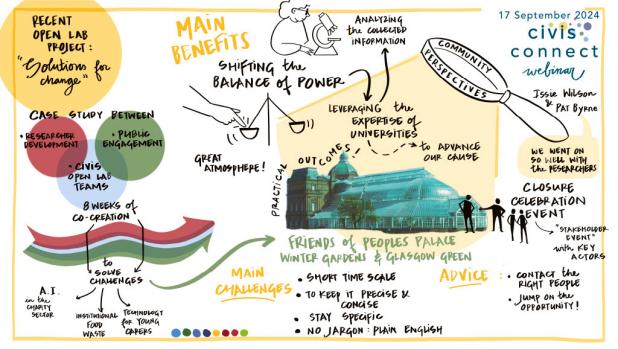 RECENT
OPEN LAB
PROJECT :
"Solutions for
change"
CASE STUDY BETWEEN
• RESEARCHER
DEVELOPMENT
• PUBLIC
ENGAGEMENT
• CIVIS
OPEN LAB
TEAMS
8 WEEKS of
CO-CREATION
to
SOLVE
CHALLENGES
A.I.
in the
CHARITY
SECTOR
INSTITUTIONAL
FOOD
WASTE
TECHNOLOGY
for YOUNG
CARERS
MAIN
BENEFITS
ANALYZING
the COLLECTED
INFORMATION
SHIFTING the
BALANCE of POWER
GREAT
ATMOSPHERE!
LEVERAGING the
EXPERTISE of
UNIVERSITIES
to ADVANCE
OUR CAUSE
PRACTICAL
OUTCOMES
COMMUNITY
PERSPECTIVES
FRIENDS of PEOPLES PALACE
WINTER GARDENS & GLASGOW GREEN
MAIN
CHALLENGES
• SHORT TIME SCALE
• TO KEEP IT PRECISE &
CONCISE
• STAY SPECIFIC
• NO JARGON : PLAIN ENGLISH
17 September 2024
civis
connect
webinar
Issie Wilson
& PAT Byrne
WE WENT ON
SO WELL WITH
the RESEARCHERS
CLOSURE
CELEBRATION
EVENT
"STAKEHOLDER
EVENT"
with KEY
ACTORS
ADVICE :
• CONTACT the
RIGHT PEOPLE
• JUMP ON the
OPPORTUNITY!